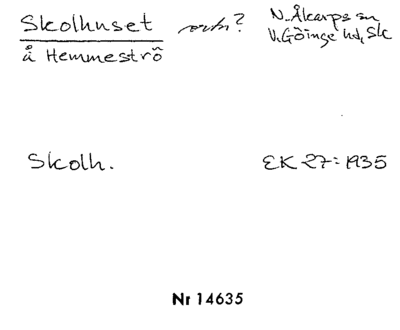 Skolhuset ortn? N. Åkarps sn
å Hemmeströ V. Göinge hd, Sk
Skolh. EK 27:1935
Nr 14635